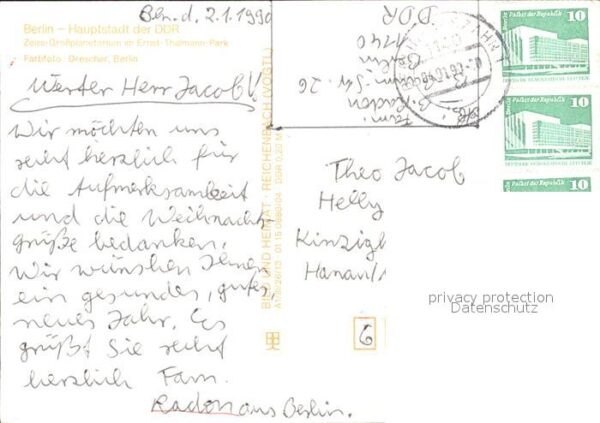 Bln. d. 2.1.1990
Berlin – Hauptstadt der DDR
Zeiss-Großplanetarium im Ernst-Thälmann-Park
Farbfoto: Drescher, Berlin
Werter Herr Jacob!
Wir möchten uns
recht herzlich für
die Aufmerksamkeit
und die Weihnachts-
grüße bedanken.
Wir wünschen Ihnen
ein gesundes, gutes,
neues Jahr. Es
grüßt Sie recht
herzlich Fam.
Radon aus Berlin.
BILD UND HEIMAT · REICHENBACH (VOGTL)
Fam.
B. Radon
26
Berlin
1140
DDR
Palast der Republik 10
Palast der Republik 10
Palast der Republik 10
Theo Jacob
Helly
Kinzigh
Hanau/
6
privacy protection
Datenschutz